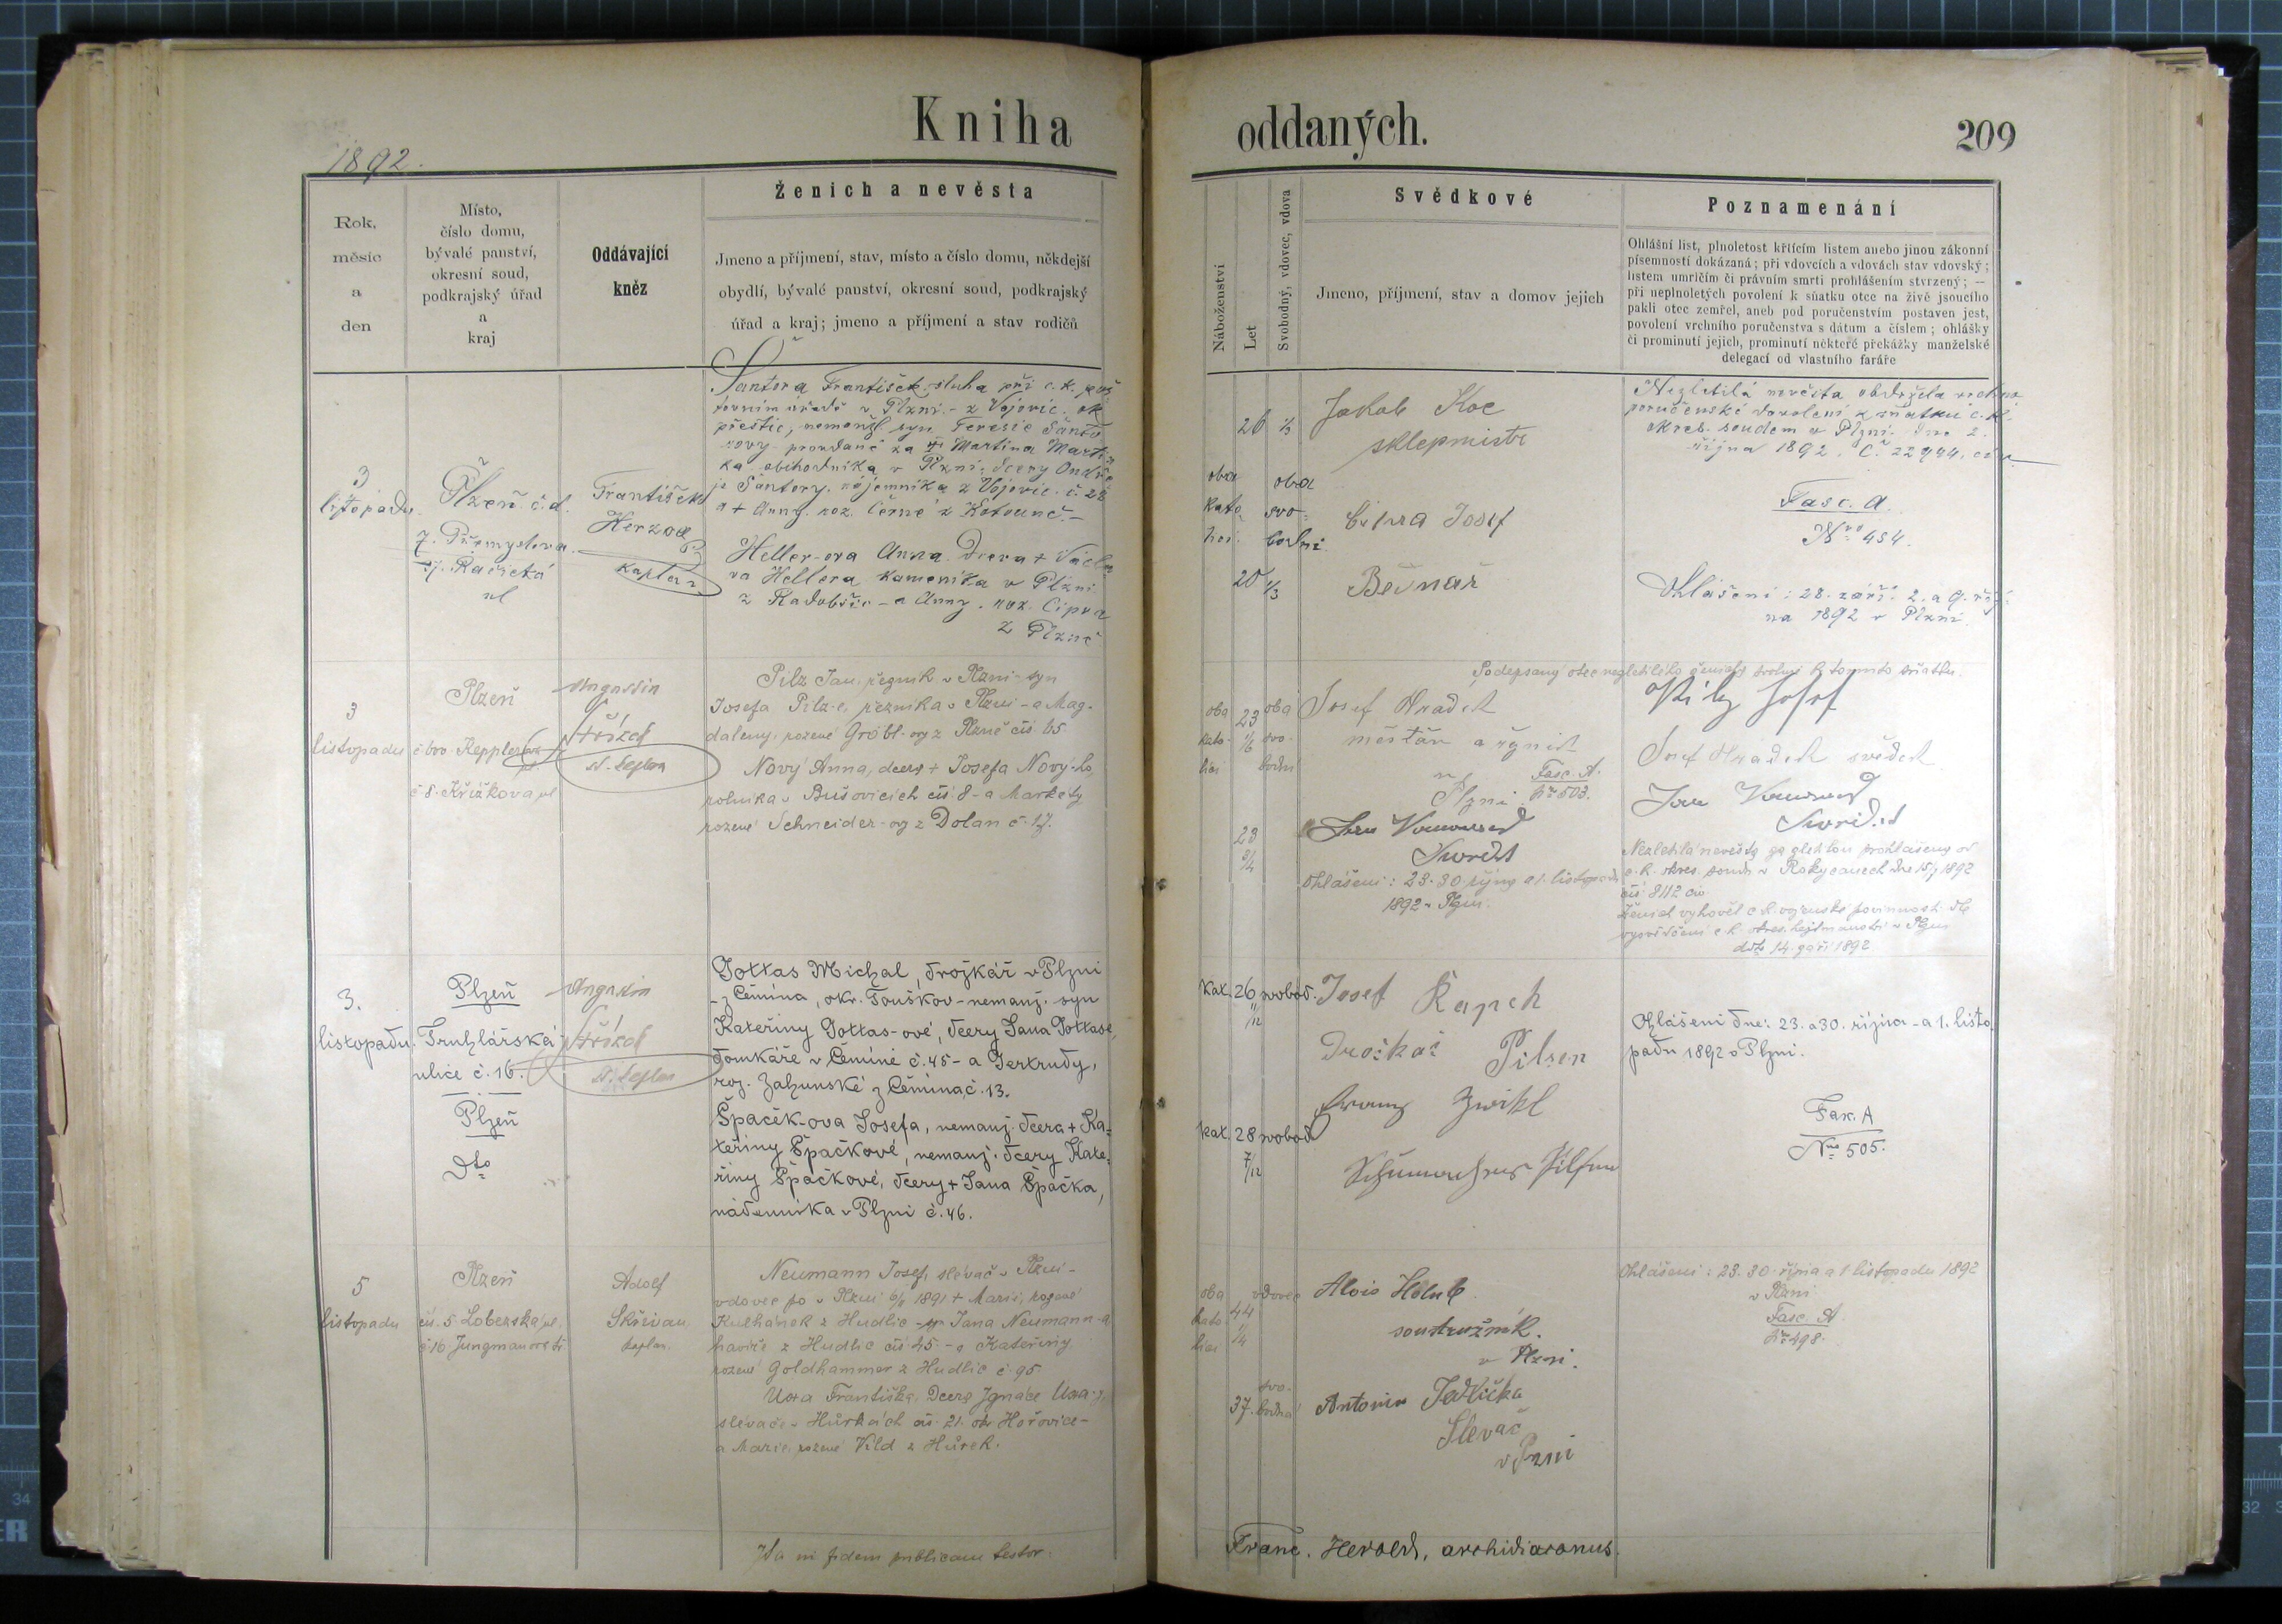 Kniha
oddaných.
209
1892.
Rok,
měsíc
a
den
Místo,
číslo domu,
bývalé panství,
okresní soud,
podkrajský úřad
a
kraj
Oddávající
kněz
Ženich a nevěsta
Jmeno a příjmení, stav, místo a číslo domu, někdejší
obydlí, bývalé panství, okresní soud, podkrajský
úřad a kraj; jmeno a příjmení a stav rodičů
Náboženství
Let
Svobodný, vdovec, vdova
Svědkové
Jmeno, příjmení, stav a domov jejich
Poznamenání
Ohlášní list, plnoletost křticím listem anebo jinou zákonní
písemností dokázaná; při vdovcích a vdovách stav vdovský;
listem umrlčím či právním smrti prohlášením stvrzený; —
při neplnoletých povolení k sňatku otce na živě jsoucího
pakli otec zemřel, aneb pod poručenstvím postaven jest,
povolení vrchního poručenstva s dátum a číslem; ohlášky
či prominutí jejich, prominutí některé překážky manželské
delegací od vlastního faráře
3
listopadu
Plzeň č. d.
7. Přemyslova
17. Račická
ul
František
Herzog
kaplan
Šantora František, sluha při c. k. poš
tovním úřadě v Plzni - z Vojovic, ok
přeštic, nemanž. syn Terezie Šanto
rovy provdané za Martina Marti
ka obchodníka v Plzni, dcery Ondře
je Šantory, nájemníka z Vojovic č. 28
a + Anny, roz. Černé z Kotouně. -
Heller-ova Anna, dcera + Václa
va Hellera kameníka v Plzni
z Radobčic - a Anny, roz. Cipra
z Plzně
26 1/3
oba
kato
lící
oba
svo-
bodní
20 1/3
Jakob Koc
sklepmistr
Cipra Josef
Bečnař
Nezletilá nevěsta obdržela vrchno
poručenské dovolení k sňatku c. k.
okres. soudem v Plzni dne 2.
října 1892. Č. 22944. civ.
Fasc. A.
Nro 484.
Ohlášeni: 28. září. 2. a 9. říj
na 1892 v Plzni.
3
listopadu
Plzeň
č. 8. Křižkova ul
Augustin
Střízek
kaplan
Pilz Jan, řezník v Plzni - syn
Josefa Pilz-e, řezníka v Plzni - a Mag-
daleny, rozené Gröbl-ovy z Plzně čís. 65.
Nový Anna, dcera + Josefa Nový-ho,
rolníka v Bušovicích čís. 8 - a Markety
rozené Schneider-ovy z Dolan č. 17.
oba
kato-
lici
23 1/6
oba
svo-
bodni
23
Josef Hradek
měšťan a řezník
v
Plzni
Fasc. A.
Nro 503.
Ohlášeni: 23. 30 října a 1. listopadu
1892 v Plzni.
Podepsaný otec nezletilého ženicha svoluje k tomuto sňatku.
Pilz Josef
Josef Hradek svědek
Nezletilá nevěsta za zletilou prohlášena od
c. k. okres. soudu v Rokycanech dne 15/7 1892
čís. 8112 civ.
Ženich vyhověl c. k. vojenské povinnosti dle
vysvědčení c. k. okres. hejtmanství v Plzni
ddto 14. září 1892
3.
listopadu.
Plzeň
Truhlářská
ulice č. 16.
Plzeň
Dto
Augustin
Střízek
kaplan
Gottas Michal, drožkář v Plzni
- z Čemína, okr. Touškov - nemanž. syn
Kateřiny Gottas-ové, dcery Jana Gottase,
domkáře v Čemíně č. 45 - a Gertrudy,
roz. Zahunské z Čemína, č. 13.
Špaček-ova Josefa, nemanž. dcera + Ka-
teřiny Špačkové, nemanž. dcery Kate-
řiny Špačkové, dcery + Jana Špačka,
nádenníka v Plzni č. 46.
kat. 26 11/12 svobod.
kat. 28 7/12 svobod
Josef Rapch
Drožkař Pilsen
Franz Zwikl
Schumacher Pilsen
Ohlášeni dne: 23. a 30. října - a 1. listo
padu 1892 v Plzni.
Fax. A
Nro 505.
5
listopadu
Plzeň
čís. 5 Lobezská ul.
č. 16 Jungmanova tř.
Adolf
Skřivan
kaplan.
Neumann Josef, slévač v Plzni -
vdovec po v Plzni 6/11 1891 + Marii, rozené
Kulhánek z Hudlic - syn Jana Neumann-a
havíře z Hudlic čís. 45. - a Kateřiny
rozené Goldhammer z Hudlic č. 95
Uxa Františka, dcera Ignáce Uxa-y,
slévače v Hůrkách čís. 21. okr Hořovice -
a Marie, rozené Vild z Hůrek.
oba
kato
lici
44 1/4
vdovec
37.
svo-
bodna
Alois Holub
soustružník.
v Plzni.
Antonin Jedlička
Slevač
v Pzni
Ohlášeni: 23. 30. října a 1 listopadu 1892
v Plzni
Fasc. A.
Nro 498.
Ita in fidem publicam testor.
Franc. Herold, archidiaconus.